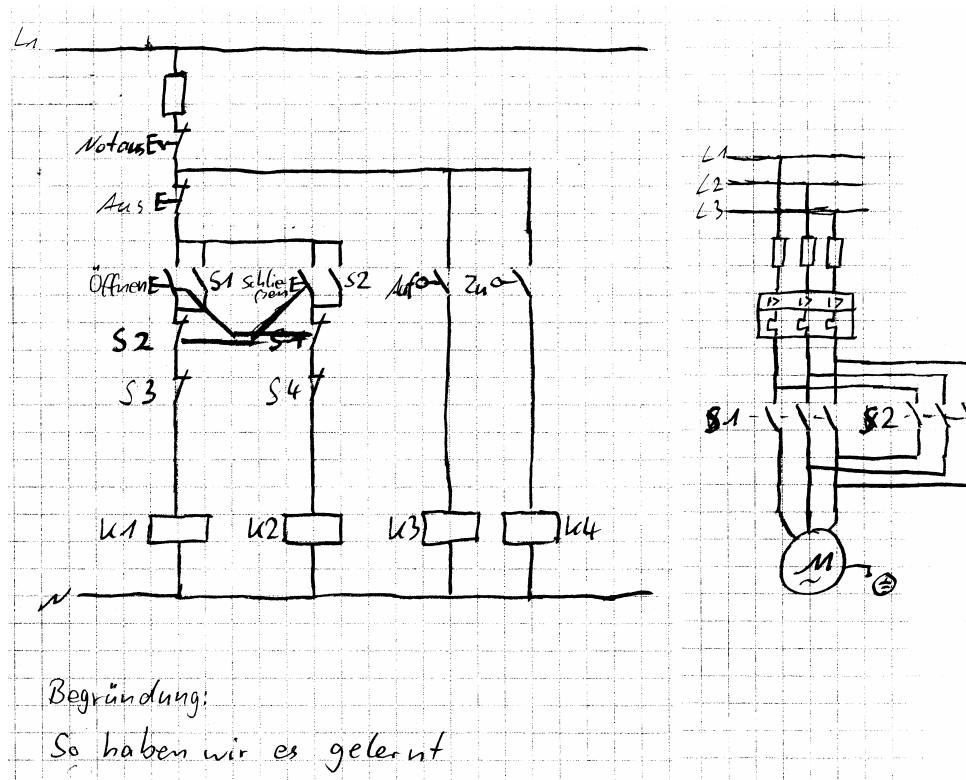 L1
Notaus
Aus
Öffnen S1 Schlie- S2 Auf Zu
ßen
S2 S1
S3 S4
K1 K2 K3 K4
N
L1
L2
L3
I> I> I>
S1 S2
M
~
Begründung:
So haben wir es gelernt